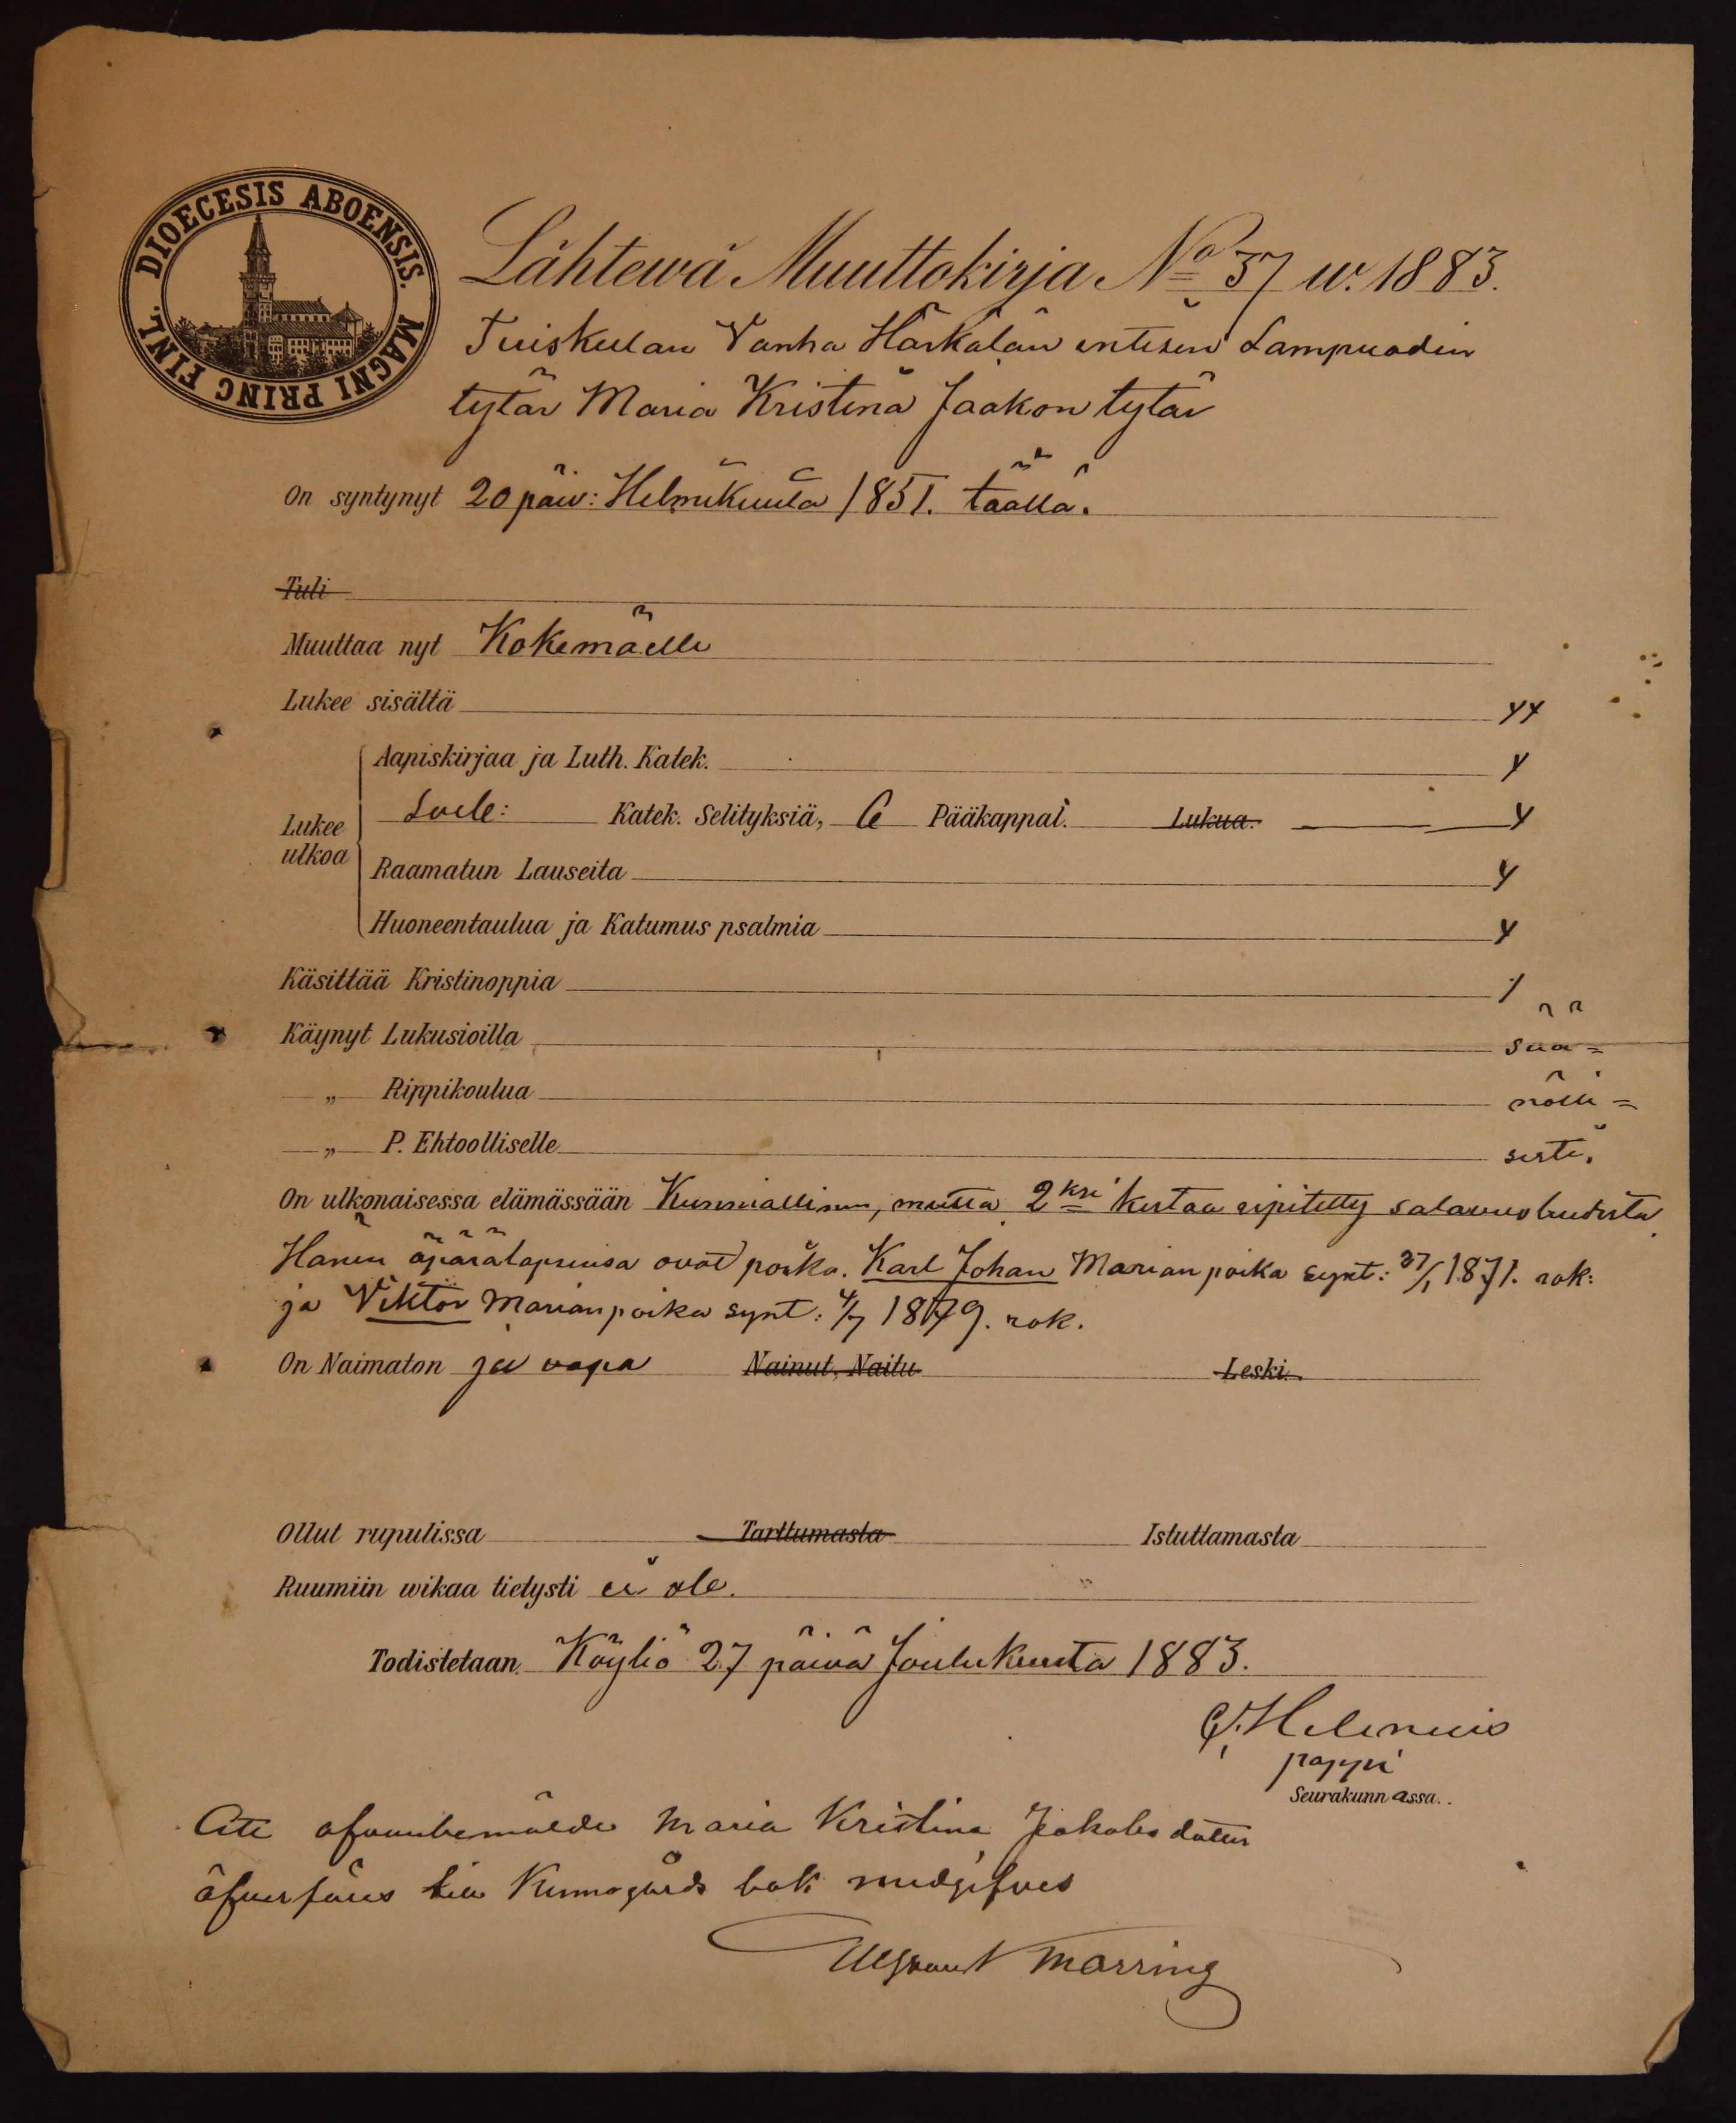 DIOECESIS ABOENSIS. MAGNI PRINC FINL.
Lähtewä Muuttokirja No 37 w. 1883.
Tuiskulan Vanha Härkälän entisen Lampuodin
tytär Maria Kristina Jaakon tytär
On syntynyt 20 päiv: Helmikuuta 1851. täällä.
Tuli
Muuttaa nyt Kokemäelle
Lukee sisältä
Aapiskirjaa ja Luth. Katek.
Lukee ulkoa
Katek. Selityksiä, 6 Pääkappal. Lukua.
Raamatun Lauseita
Huoneentaulua ja Katumus psalmia
Käsittää Kristinoppia
Käynyt Lukusioilla sään=
„ Rippikoulua nölli=
„ P. Ehtoolliselle sesti.
On ulkonaisessa elämässään Kunniallinen, mutta 2ksi kertaa ripitetty salavuoteudesta.
Hänen äpärälapsensa ovat poika. Karl Johan Marian poika synt: 27/1 1871. rok:
ja Viktor Marian poika synt: 4/7 1879. rok.
On Naimaton ja vapa Nainut, Naitu Leski.
Ollut rupulissa Tarttumasta Istuttamasta
Ruumiin wikaa tietysti ei ole.
Todistetaan. Köyliö 27 päivä Joulukuuta 1883.
Helenius
pappi
Seurakunnassa.
Att ofvanbemälde Maria Kristina Jakobsdotter
öfverföres till Kumogårds bok medgifves
Morring